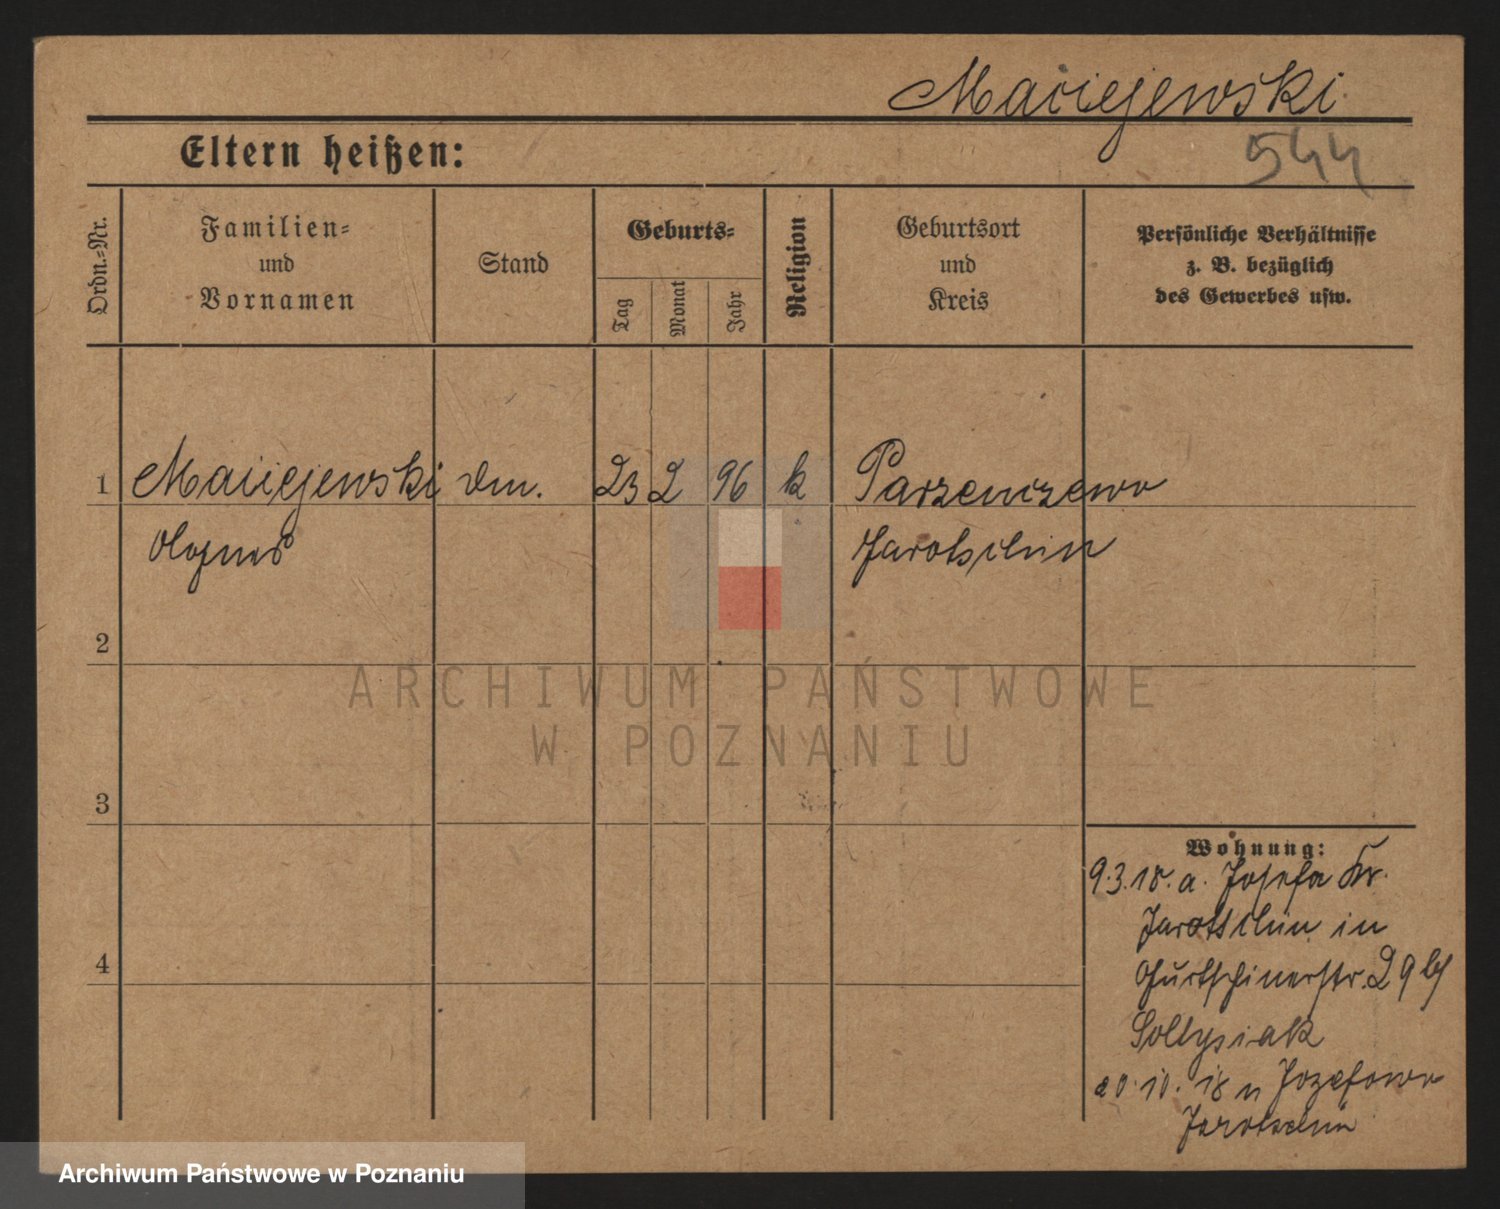 Maciejewski
544
Eltern heißen:
Ordn.=Nr.
Familien=
und
Vornamen
Stand
Geburts=
Tag
Monat
Jahr
Religion
Geburtsort
und
Kreis
Persönliche Verhältnisse
z. B. bezüglich
des Gewerbes usw.
1 Maciejewski Dm. 23 2 96 k Parzenczewo
Agnes Jarotschin
2
ARCHIWUM PAŃSTWOWE
W POZNANIU
3
Wohnung:
9.3.18. a. Josefa Kr.
Jarotschin in
29 bf
Soltysiak
20. 10. 18 n Jozefowo
Jarotschin
4
Archiwum Państwowe w Poznaniu